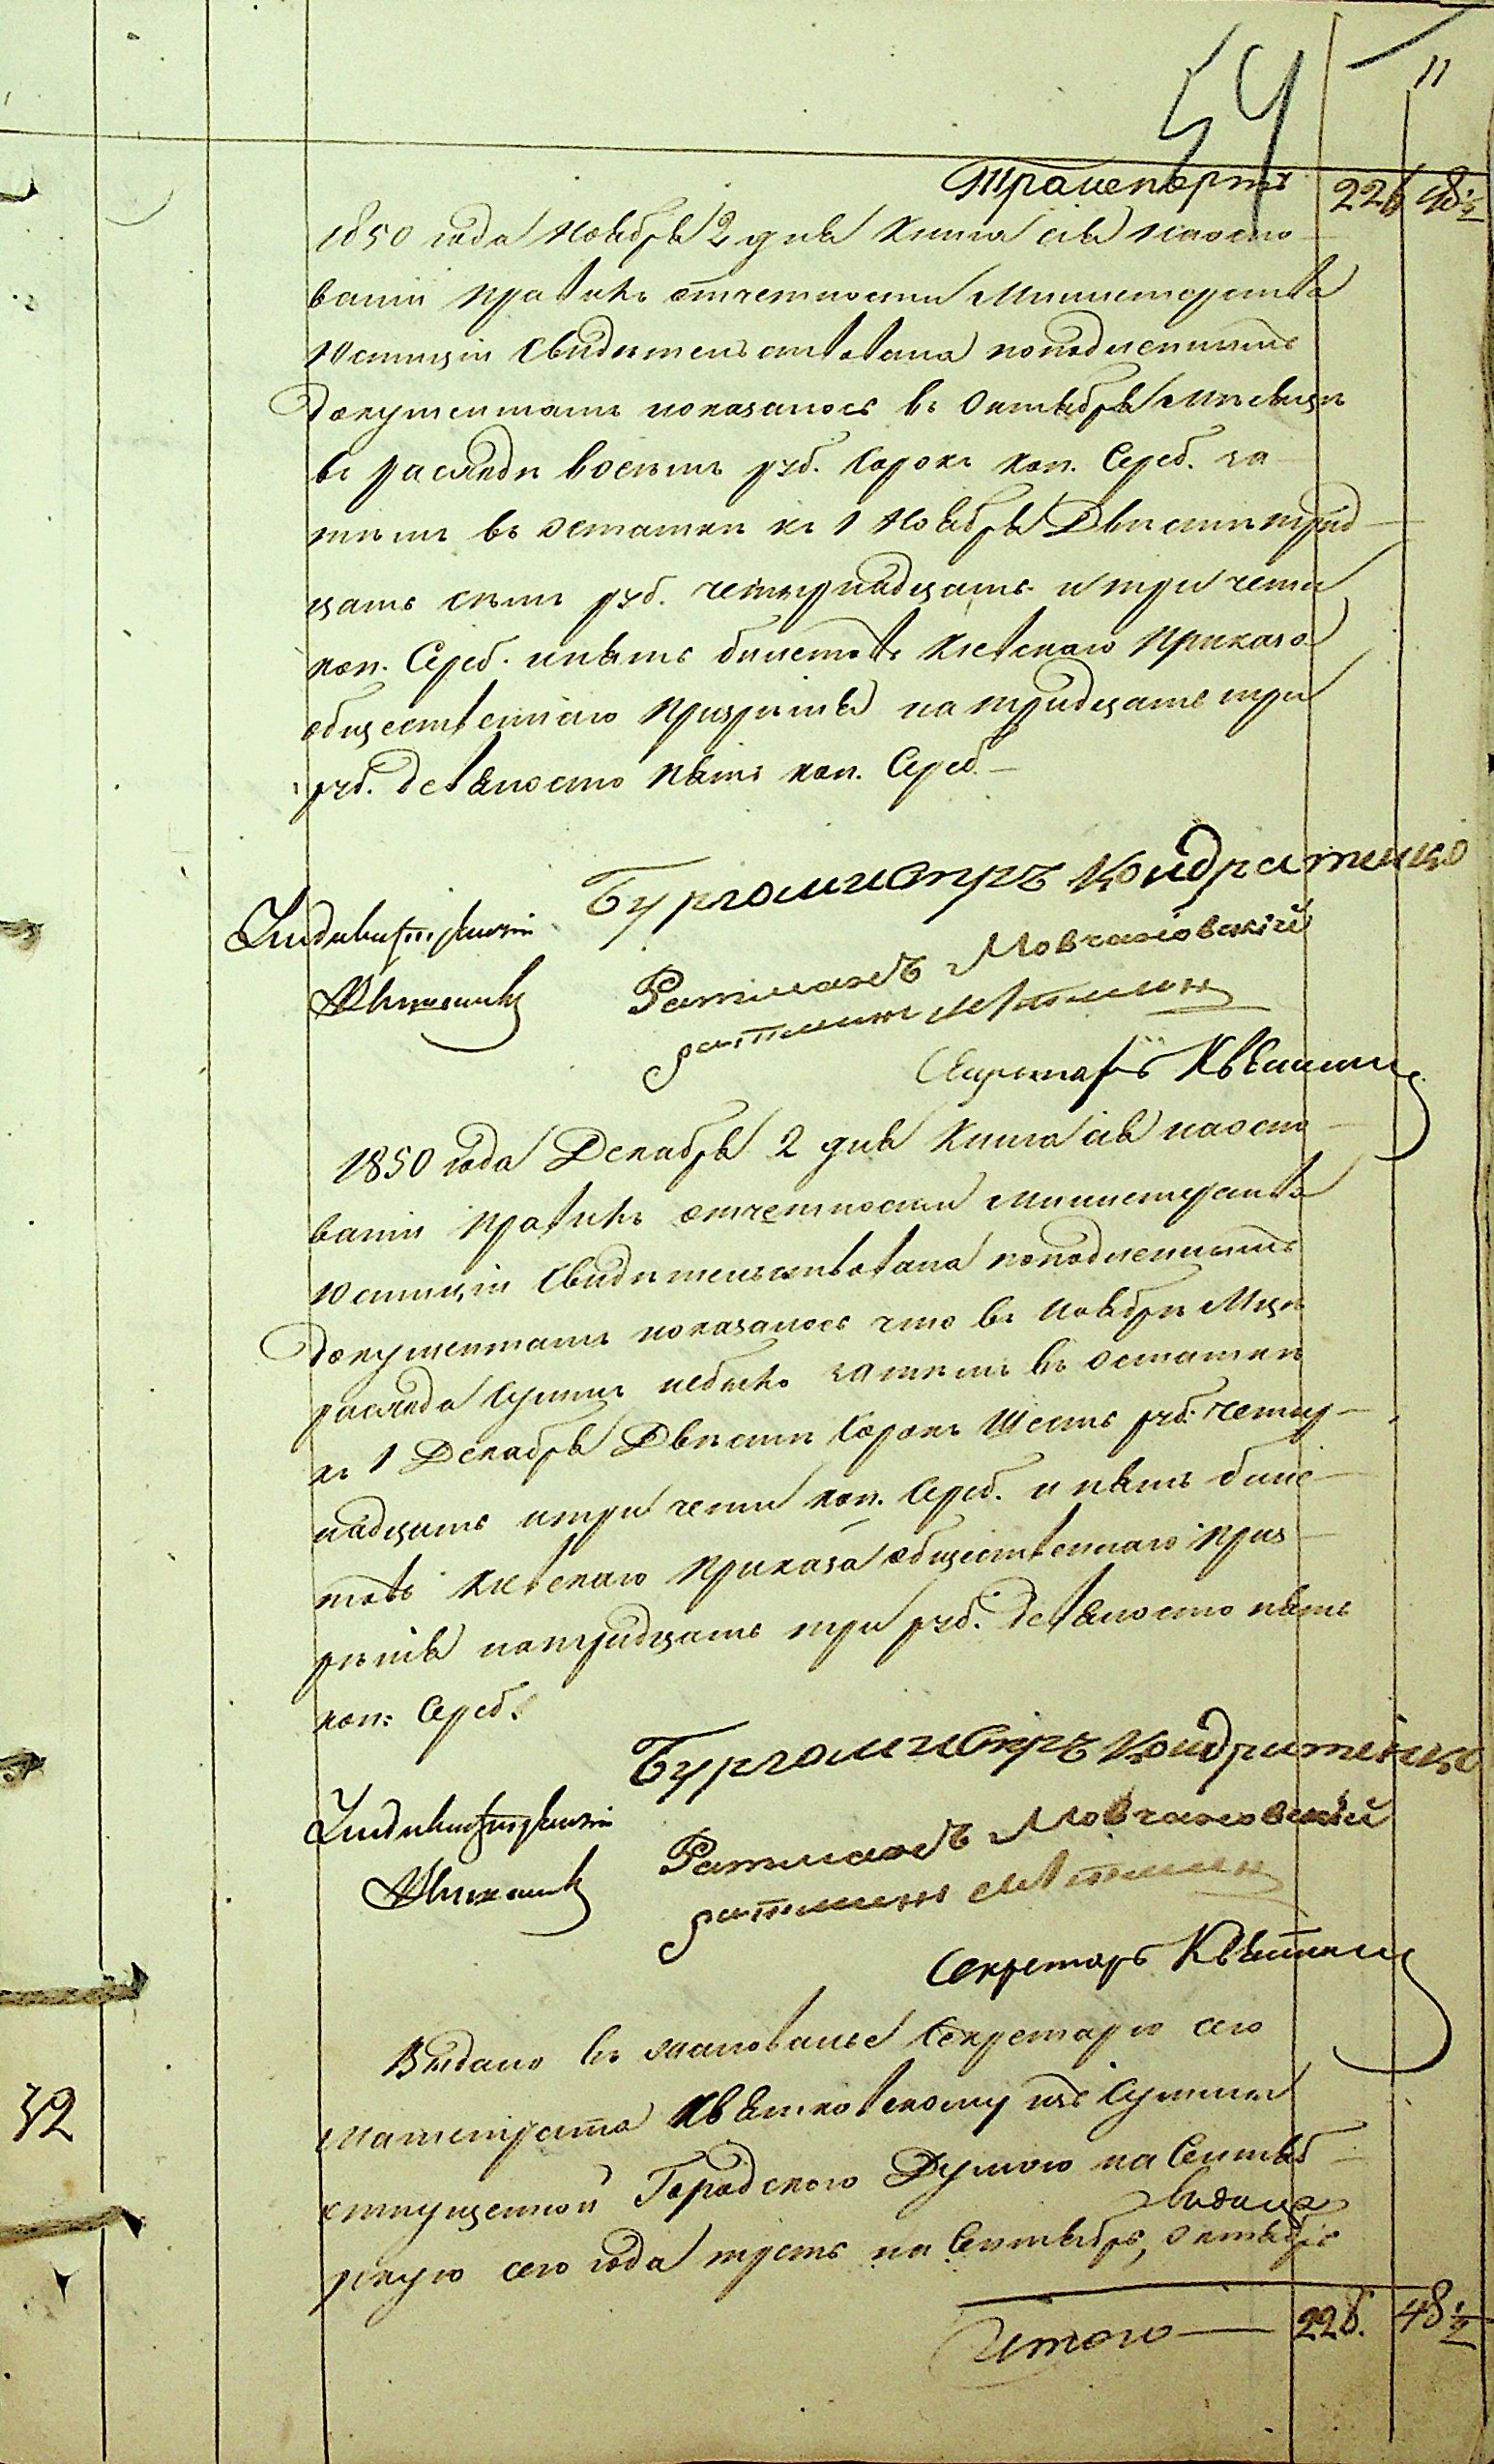 54
11
Транспортъ 226 48 ½
1850 года Ноября 2 дня Книга сія наосно-
ваніи правилъ отчетности Министерства
Юстиціи свидѣтельствована поподленнымъ
документамъ показалось въ Октябрѣ мѣсяцѣ
въ расходѣ восемь руб. сорокъ коп. сереб. за
тѣмъ въ остаткѣ къ 1 Ноября Двѣсти трид-
цать семь руб. четырнадцать и три чети
коп. Сереб. ипять билетовъ Кіевскаго Приказа
общественнаго Призрѣнія на тридцать три
руб. девяносто пять коп. Сереб.
Бургомистръ Кондратенко
Ратманъ Мовчановскій
ратманъ
Секретарь
1850 года Декабря 2 дня Книга сія наосно-
ваніи правилъ отчетности Министерства
Юстиціи свидѣтельствована поподленнымъ
документамъ показалось что въ Ноябрѣ Мцѣ
расхода суммъ небыло затѣмъ въ остаткѣ
къ 1 Декабря Двѣсти сорокъ шесть руб. четыр-
надцать итри чети коп. Сереб. и пять биле-
товъ Кіевскаго Приказа общественнаго Приз-
рѣнія натридцать три руб. девяносто пять
коп: Сереб:
Бургомистръ Кондратенко
Ратманъ Мовчановскій
ратманъ
Секретарь
Выдано въ жалованье Секретарю сего
Магистрата Квятковскому изъ суммы
отпущенной Городскою Думою на Сентяб-
видица
рскую сего года треть на Сентябрь, Октябрь
32
Итого 226. 48 ½